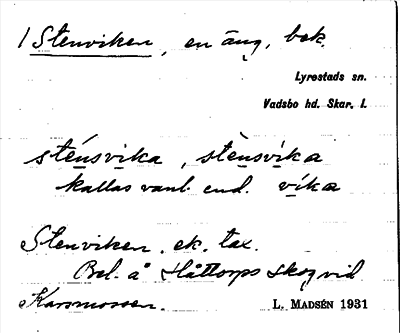 1 Stenviken, en äng, bek.
Lyrestads sn.
Vadsbo hd. Skar. l.
sténsvika, stènsvíka
kallas vanl. end. víka
Stenviken. ek. tax.
Bel. å Håttorps skog vid
Karsmossen.
L. MADSÉN 1931